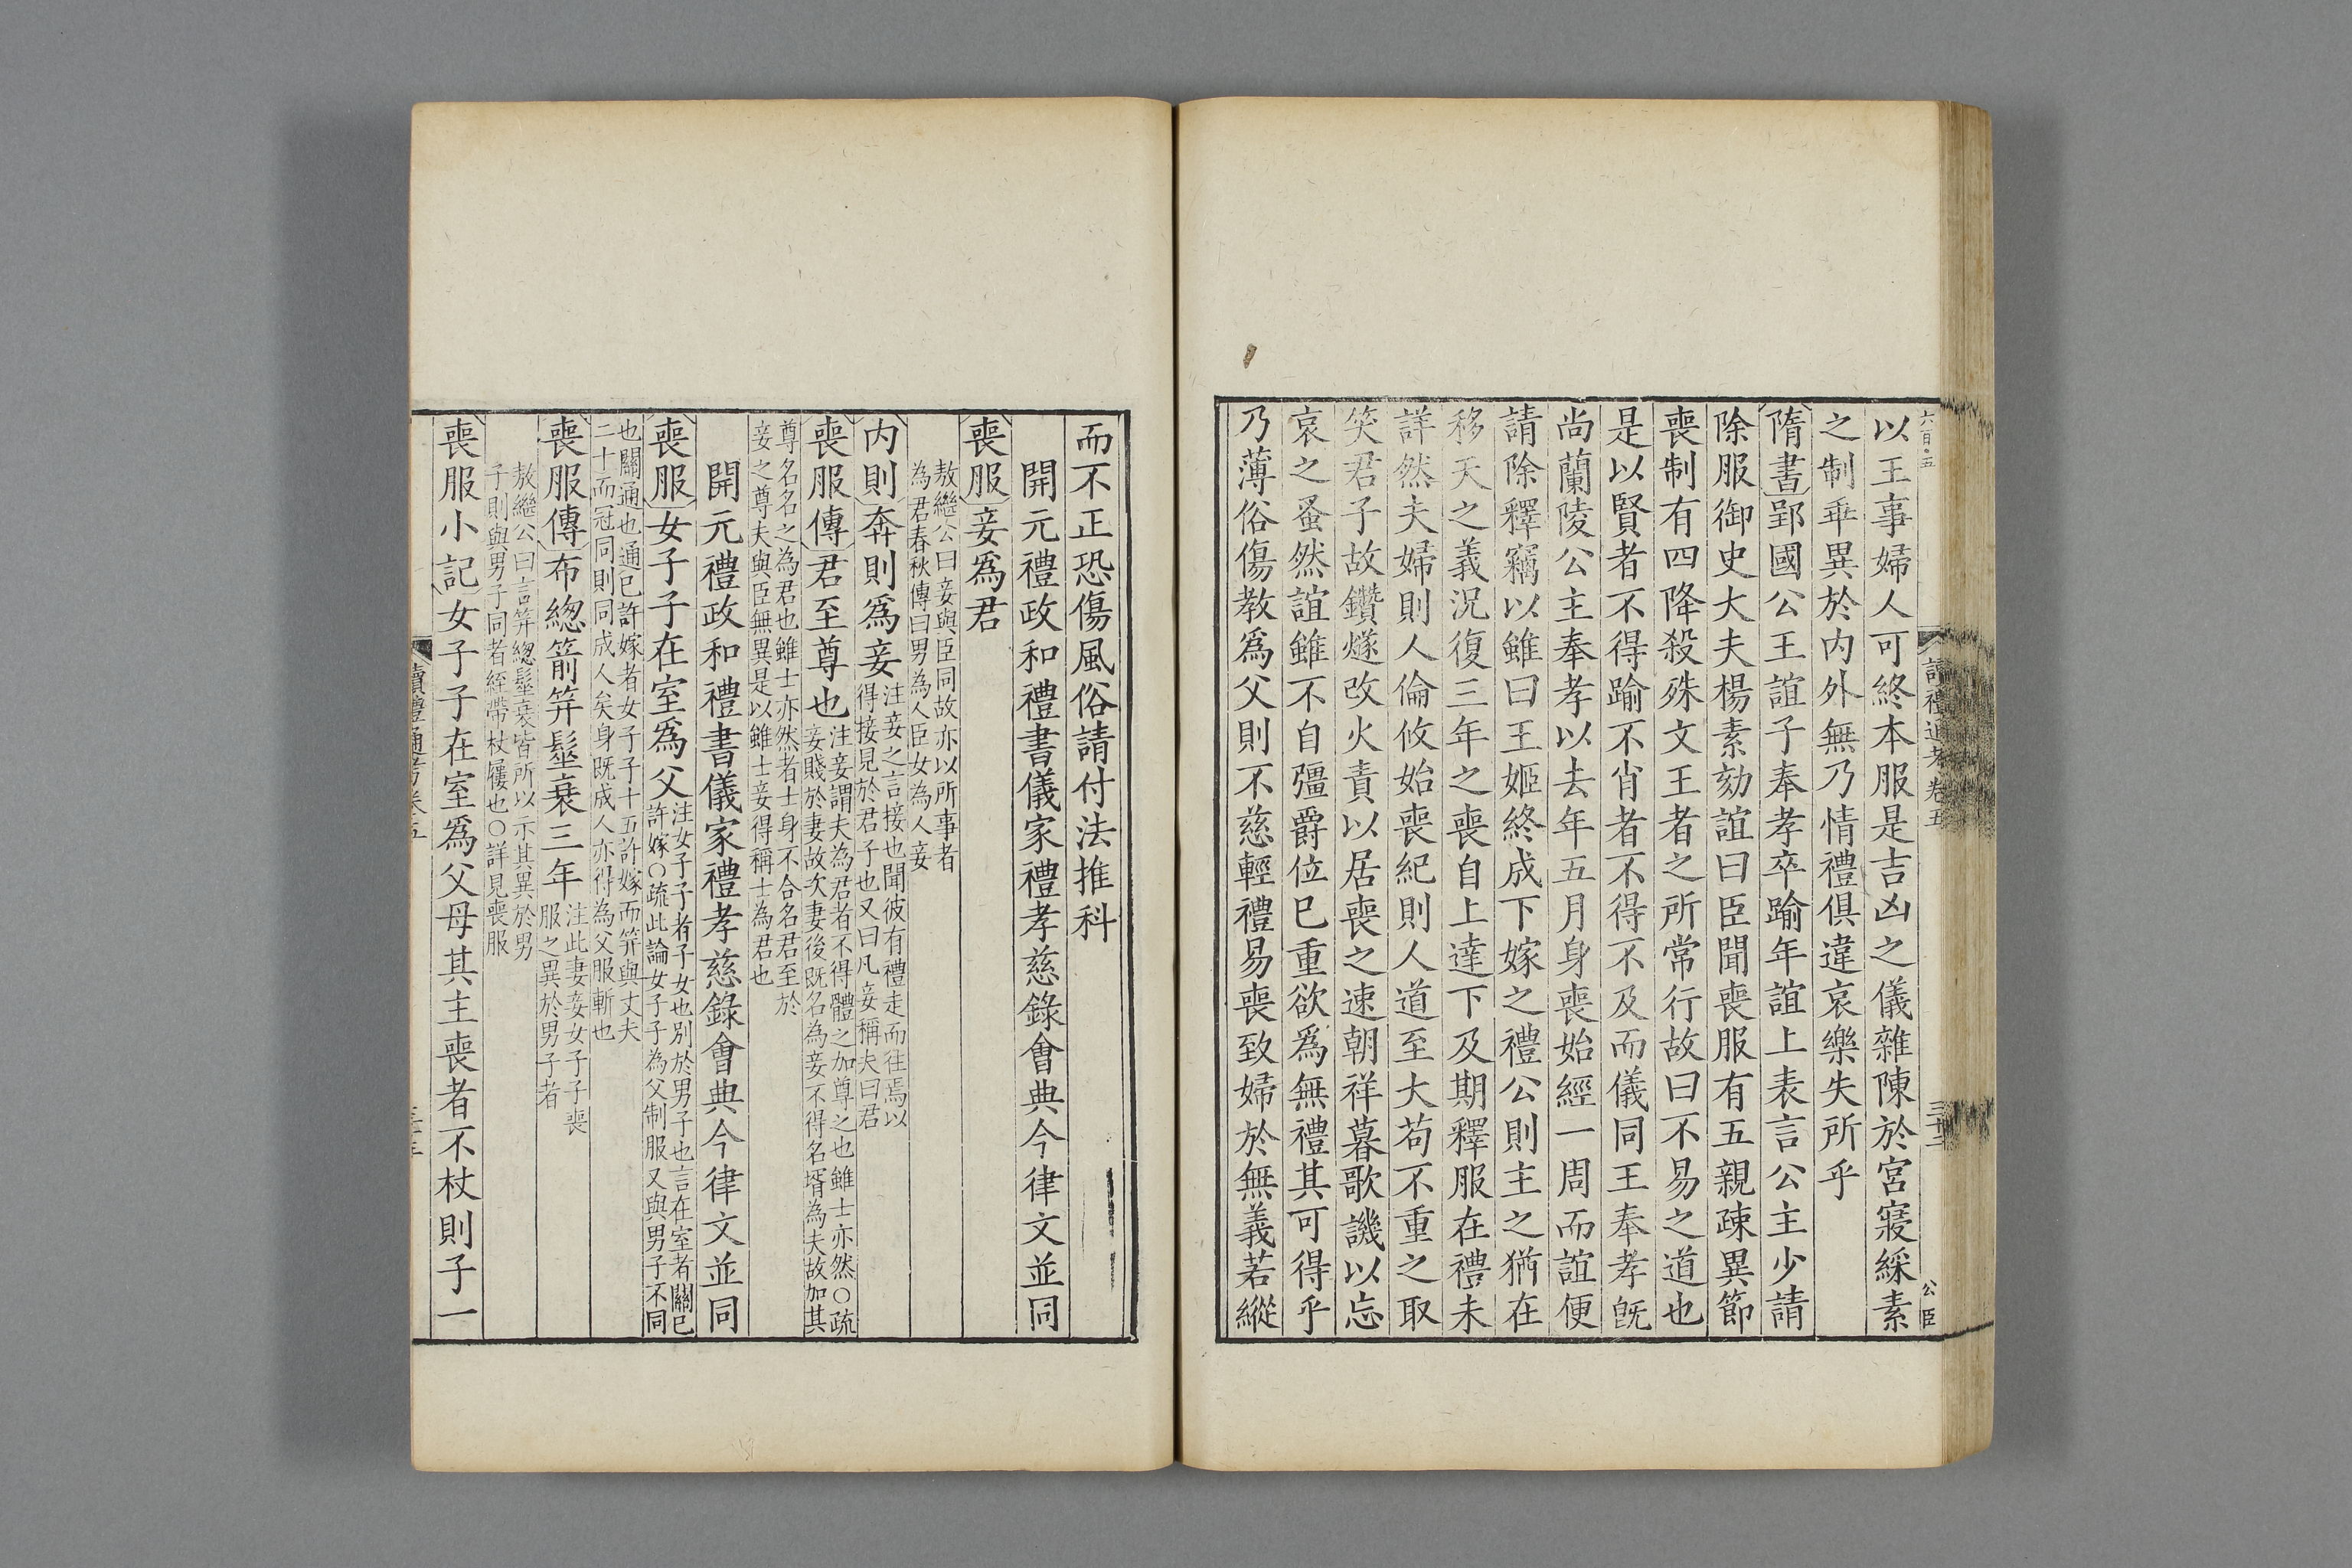 六百·五
讀禮通考卷五
三十二
公臣
以王事婦人可終本服是吉凶之儀雜陳於宮寢綵素
之制乖異於內外無乃情禮俱違哀樂失所乎
隋書郢國公王誼子奉孝卒踰年誼上表言公主少請
除服御史大夫楊素劾誼曰臣聞喪服有五親疎異節
喪制有四降殺殊文王者之所常行故曰不易之道也
是以賢者不得踰不肖者不得不及而儀同王奉孝旣
尚蘭陵公主奉孝以去年五月身喪始經一周而誼便
請除釋竊以雖曰王姬終成下嫁之禮公則主之猶在
移天之義況復三年之喪自上達下及期釋服在禮未
詳然夫婦則人倫攸始喪紀則人道至大苟不重之取
笑君子故鑽燧改火責以居喪之速朝祥暮歌譏以忘
哀之蚤然誼雖不自彊爵位已重欲爲無禮其可得乎
乃薄俗傷教爲父則不慈輕禮易喪致婦於無義若縱
而不正恐傷風俗請付法推科
開元禮政和禮書儀家禮孝慈錄會典今律文並同
喪服妾爲君
敖繼公曰妾與臣同故亦以所事者
為君春秋傳曰男為人臣女為人妾
內則奔則爲妾
注妾之言接也聞彼有禮走而往焉以
得接見於君子也又曰凡妾稱夫曰君
喪服傳君至尊也
注妾謂夫為君者不得體之加尊之也雖士亦然○疏
妾賤於妻故次妻後既名為妾不得名壻為夫故加其
尊名名之為君也雖士亦然者士身不合名君至於
妾之尊夫與臣無異是以雖士妾得稱士為君也
開元禮政和禮書儀家禮孝慈錄會典今律文並同
喪服女子子在室爲父
注女子子者子女也別於男子也言在室者關已
許嫁○疏此論女子子為父制服又與男子不同
也關通也通已許嫁者女子子十五許嫁而筓與丈夫
二十而冠同則同成人矣身既成人亦得為父服斬也
喪服傳布總箭筓髽衰三年
注此妻妾女子子喪
服之異於男子者
敖繼公曰言筓總髽衰皆所以示其異於男
子則與男子同者絰帶杖屨也○詳見喪服
喪服小記女子子在室爲父母其主喪者不杖則子一
讀禮通考卷五